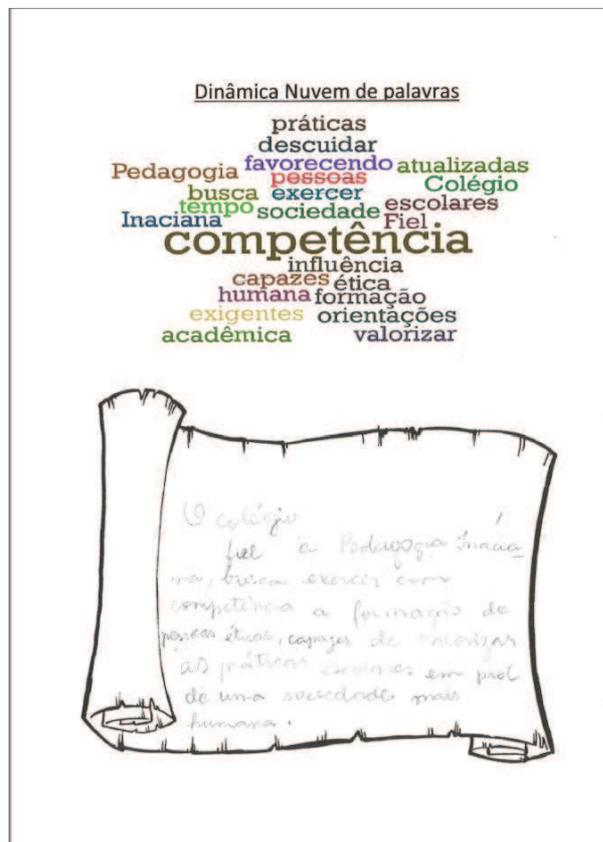 Dinâmica Nuvem de palavras
práticas
descuidar
Pedagogia favorecendo atualizadas
pessoas Colégio
busca exercer escolares
tempo sociedade Fiel
Inaciana
competência
influência
capazes ética
humana formação
exigentes orientações
acadêmica valorizar
O colégio
fiel a Pedagogia Inacia
na, busca exercer com
competência a formação de
pessoas éticas, capazes de valorizar
as práticas escolares em prol
de uma sociedade mais
humana.